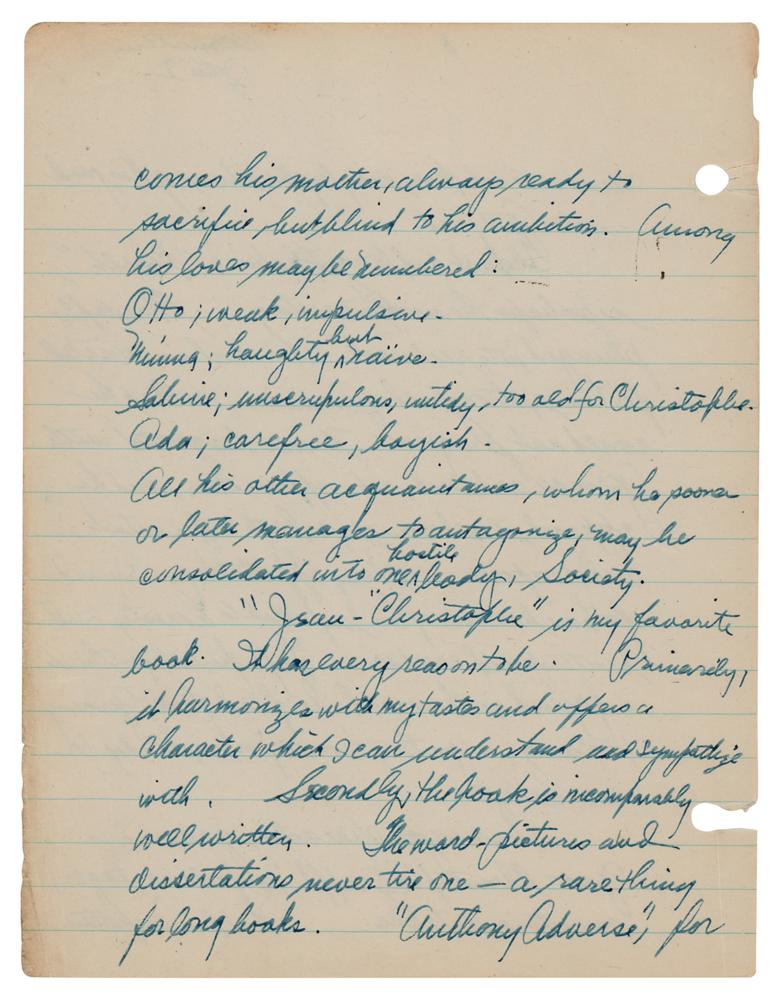 comes his mother, always ready to
sacrifice, but blind to his ambition. Among
his loves may be numbered:
Otto; weak, impulsive.
Minna; haughty but naïve.
Sabine; unscrupulous, untidy, too old for Christophe.
Ada; carefree, boyish.
All his other acquaintances, whom he sooner
or later manages to antagonize, may be
consolidated into one hostile body, Society.
"Jean-Christophe" is my favorite
book. It has every reason to be. Primarily,
it harmonizes with my tastes and offers a
character which I can understand and sympathize
with. Secondly, the book is incomparably
well written. The word-pictures and
dissertations never tire one — a rare thing
for long books. "Anthony Adverse", for